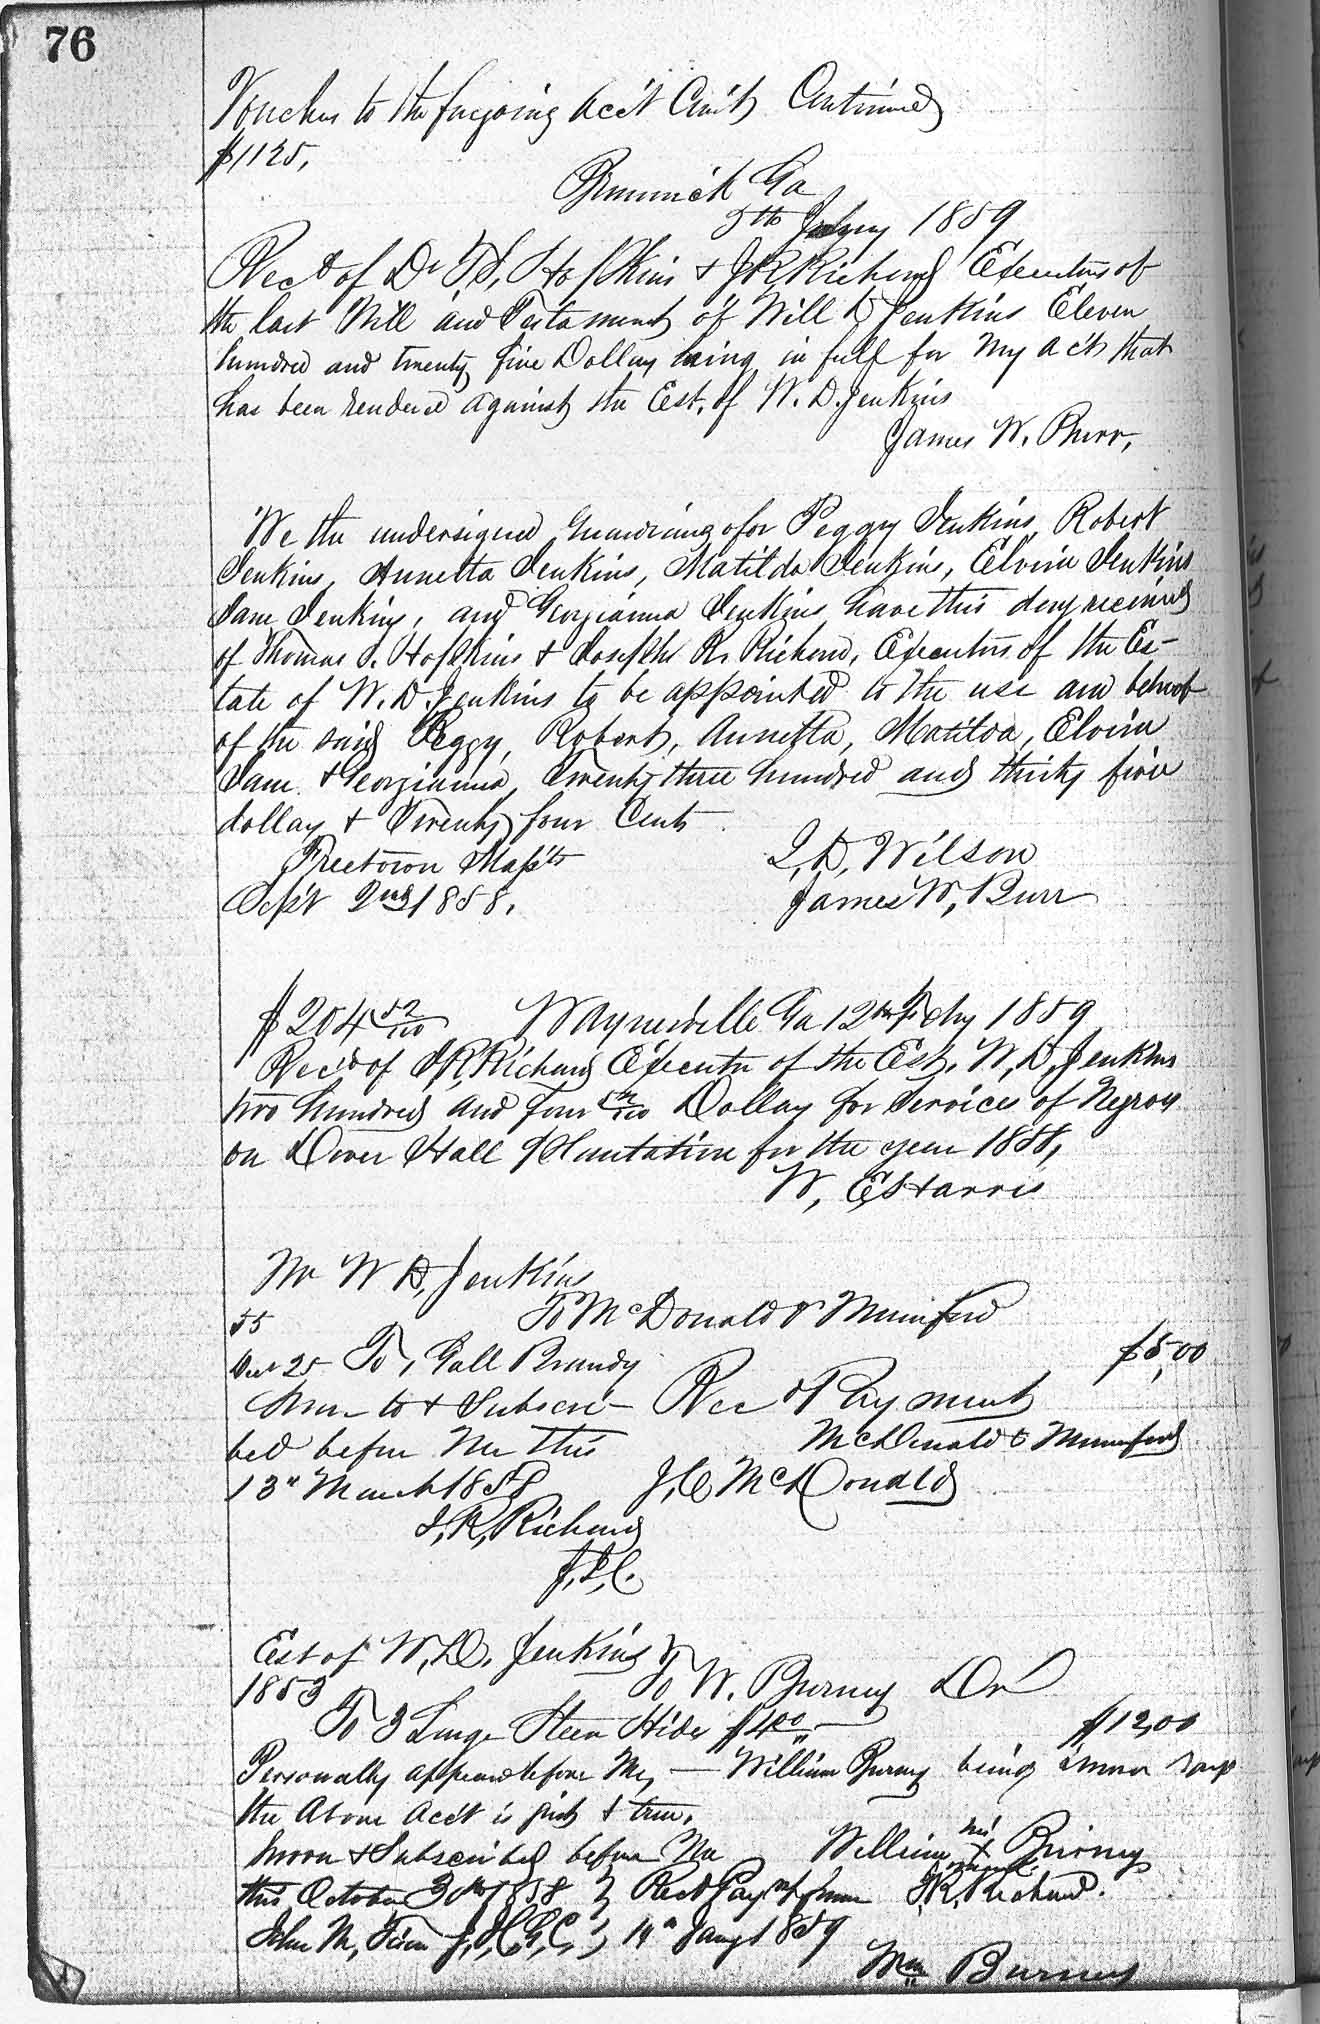 76
Vouchers to the foregoing Acc't Cur't Continued
$1125,
Brunswick Ga
5th July 1859
Rec'd of Dr T. S. Hopkins & J R Richard Executors of
the last Will and Testament of Will D Jenkins Eleven
hundred and twenty five Dollars being in full for my Acts that
has been rendered against the Est. of W. D. Jenkins
James W. Burr,
We the undersigned Guardians of for Peggy Jenkins, Robert
Jenkins, Annetta Jenkins, Matilda Jenkins, Elvira Jenkins
Sam Jenkins, and Georgianna Jenkins have this day received
of Thomas S. Hopkins & Joseph R. Richard, Executors of the Es-
tate of W. D. Jenkins to be appointed to the use and behoof
of the said Peggy, Robert, Annetta, Matilda, Elvira
Sam & Georgianna, Twenty three hundred and thirty five
dollars & Twenty four Cents
Freetown Mass'ts
Sept 2nd 1858.
I, D, Wilson
James W, Burr
$204 52/100 Waynesville Ga 12th Feby 1859
Rec'd of J R, Richard Executor of the Est. W, D, Jenkins
two hundred and four 52/100 Dollars for Services of Negroes
on Dover Hall Plantation for the year 1858,
W, E Harris
Mr W D, Jenkins
To McDonald & Mumford
55
Oct 25 To 1 Gall Brandy $5,00
Sworn to & Subscri- Rec'd Payment
bed before Me This McDonald & Mumford
13th March 1858 J, C McDonald
J, R, Richard
J, I, C.
Est of W, D. Jenkins
1853 To W. Burney Dr
To 3 Large Steer Hides $4.00 $12,00
Personally appeared before Me, — William Burney being sworn says
the Above Acc't is just & true.
Sworn & Subscribed before Me William his X mark Burney
this October 30th 1858 } Rec'd Paym't from J. R, Richard.
John M, Tison J, I, C, G, C, } 14th Jany 1859
Wm Burney